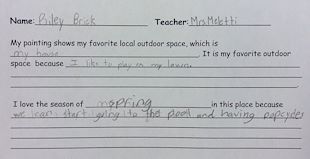 Name: Riley Brick Teacher: Mrs Meletti
My painting shows my favorite local outdoor space, which is
my house. It is my favorite outdoor
space because I like to play on my lawn.
I love the season of spring in this place because
we start going to the pool and having popcycles